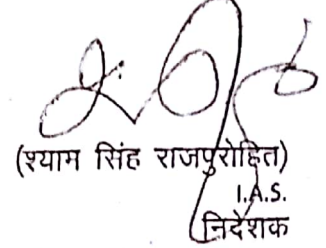 (श्याम सिंह राजपुरोहित)
I.A.S.
निदेशक